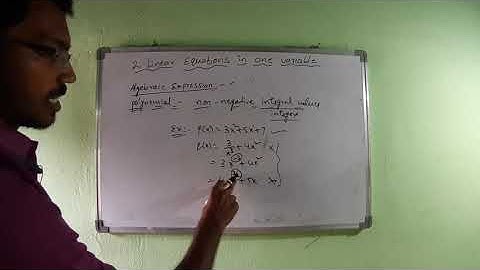 2. Linear Equations in one variable
Algebraic Expression :-
polynomial :- non-negative, integral values
integer
Ex:- P(x) = 3x²+5x+7
P(x) = 3/x² + 4x²
= 3x⁻² + 4x²
+ 5x